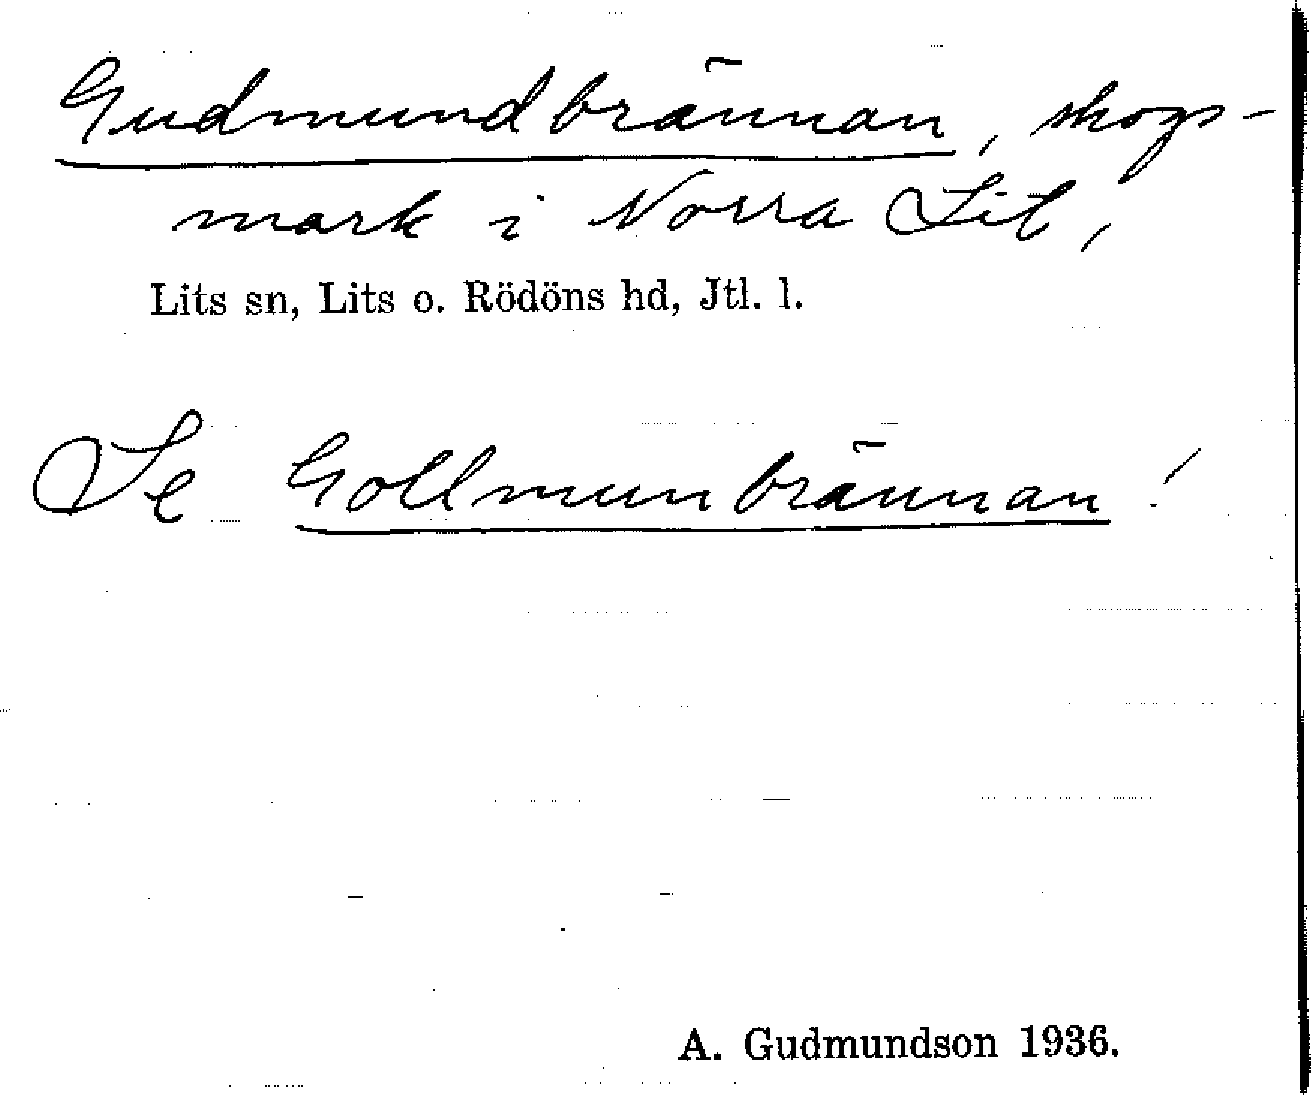 Gudmundbrännan, skogs-
mark i Norra Lit,
Lits sn, Lits o. Rödöns hd, Jtl. l.
Se Gollmunbrännan!
A. Gudmundson 1936.